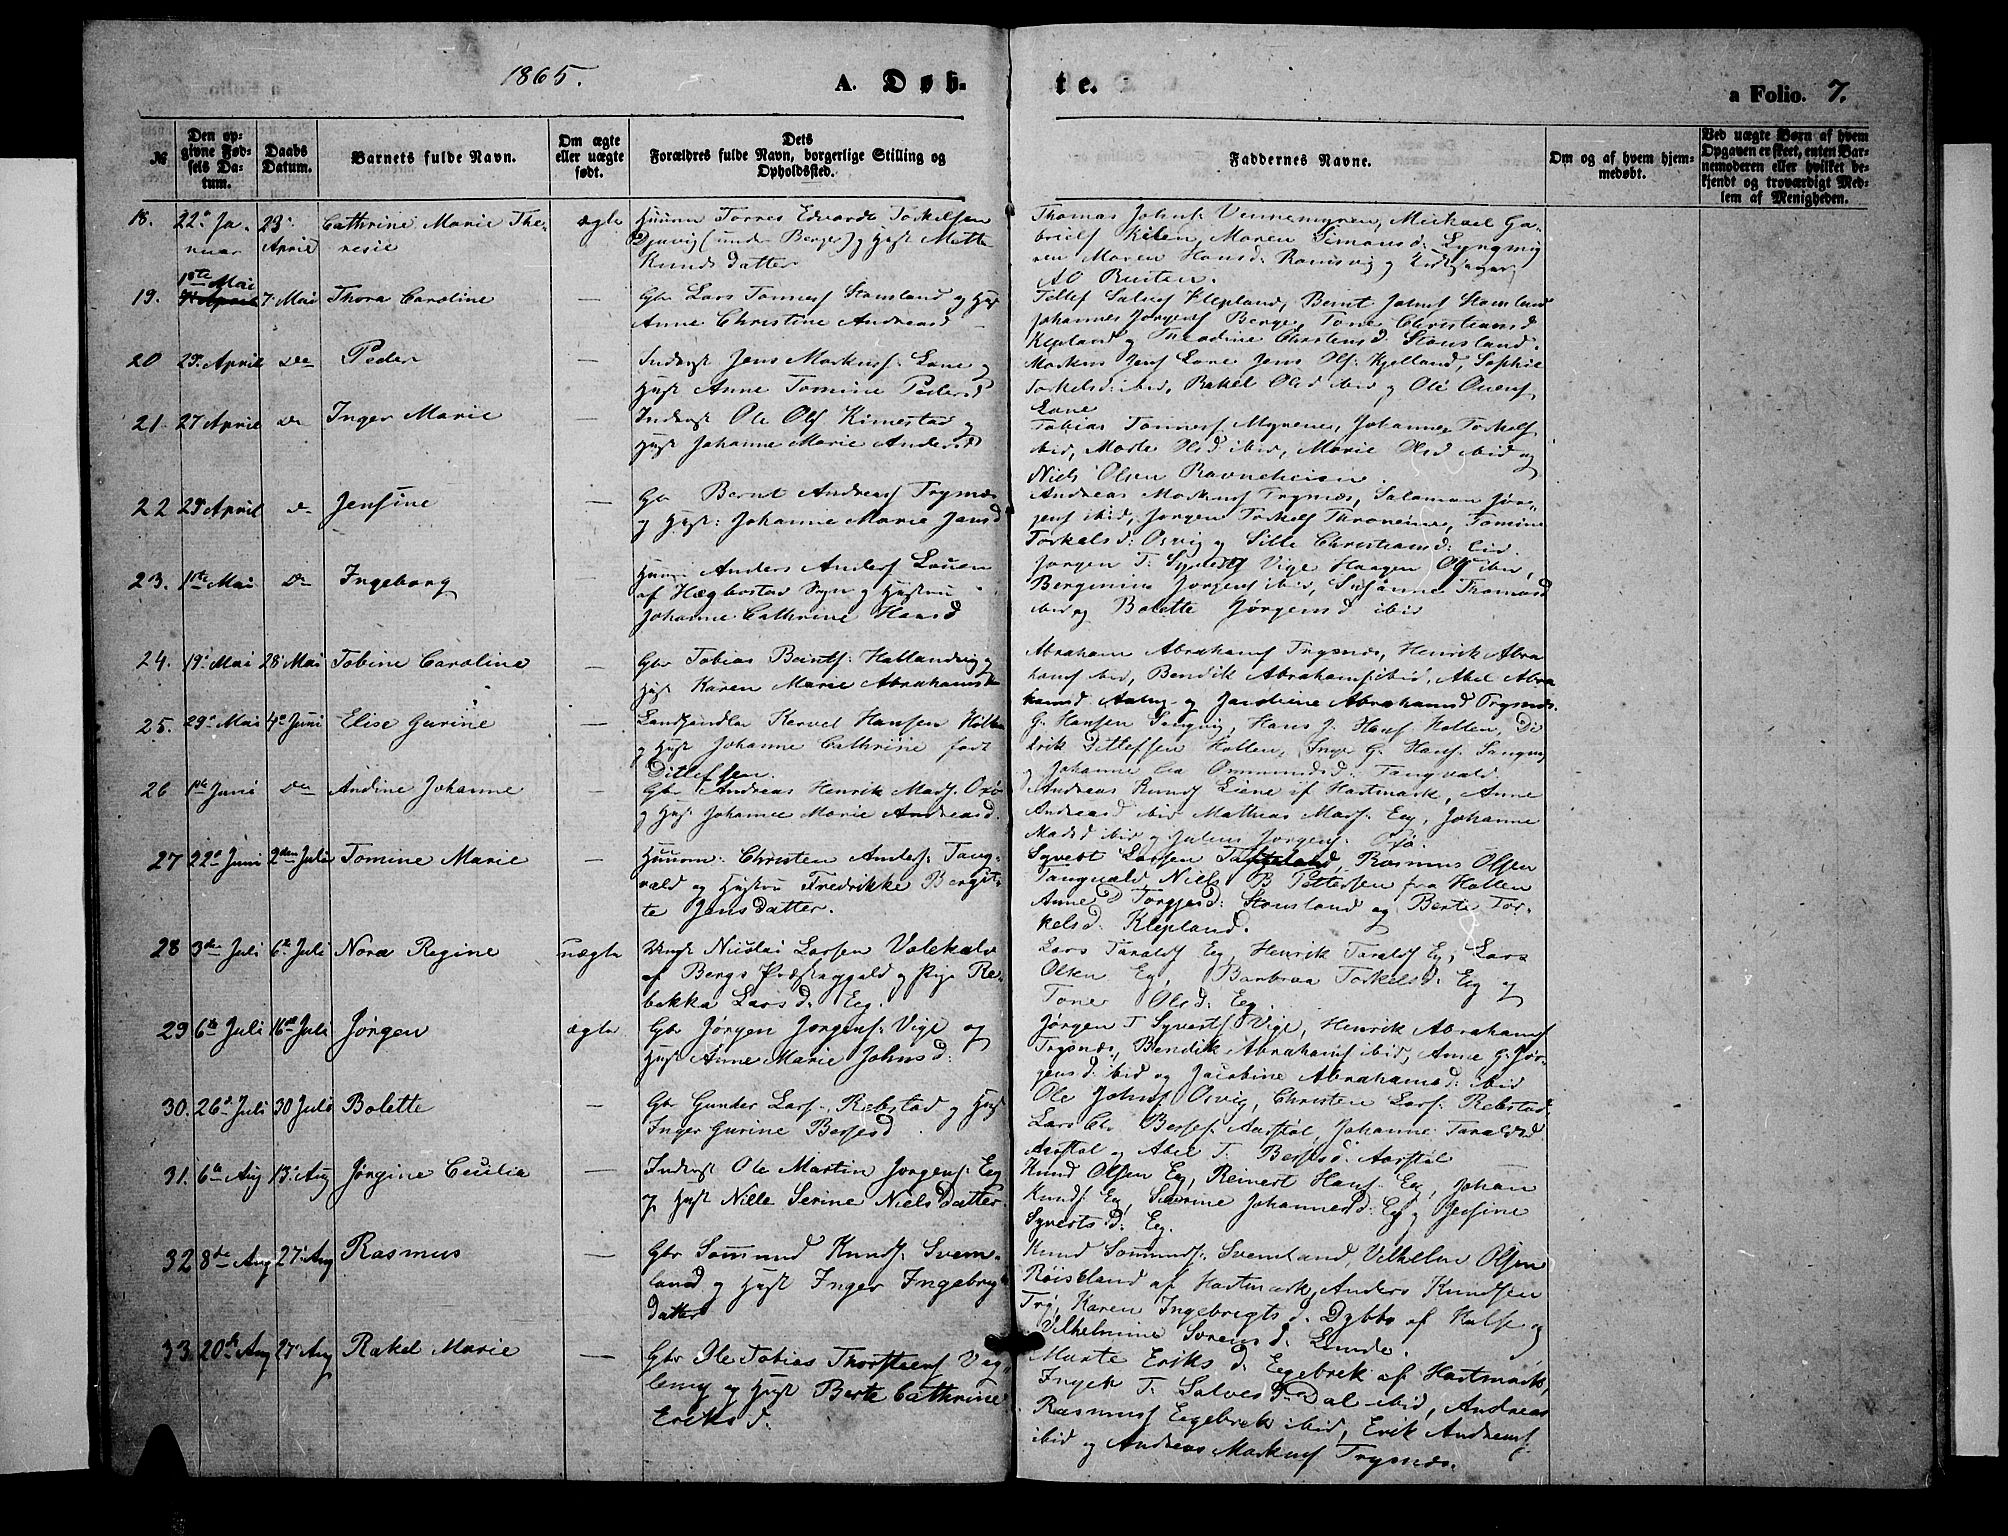 1865.
A. Døb-
te.
a Folio. 7.
№
Den op-
givne Fød-
sels Da-
tum.
Daabs
Datum.
Barnets fulde Navn.
Om ægte
eller uægte
født.
Dets
Forældres fulde Navn, borgerlige Stilling og
Opholdssted.
Faddernes Navne.
Om og af hvem hjem-
medøbt.
Ved uægte Børn af hvem
Opgaven er skeet, enten Bar-
nemoderen eller hvilket be-
kjendt og troværdigt Med-
lem af Menigheden.
18.
22de Ja-
nuar
23de
April
Cathrine Marie The-
resie
ægte
Huusm Torres Edvardt Torkelsen
(under Berge) og Hust Mette
Knudsdatter
Thomas Johns Vennemyren, Michael Ga-
briels Kilen, Maren Simonsd: Lyngmyr
Maren Hansd: Ramsvig og
19.
1ste Mai
7 Mai
Thora Caroline
—
Gbr Lars Tønnesf Stausland og Hust
Anne Christine Andreasd
Tellef Salvesf Klepland, Bernt Johnsf Stausland
Johannes Jørgensf Berge, Tone Christiansd
Klepland og Theodine Christensd Stausland.
20
23 April
Do
Peder
—
Inderst Jens Markusf: Lone og
Hust Anne Tomine Pedersd
Markus Jensf Lone Jens Olsf Kjelland, Sophie
Torkelsd: ibid, Rakel Olsd ibid og Ole
Lone
21.
27 April
Do
Inger Marie
—
Inderst Ole Olsf Kimestad og
Hust Johanne Marie Andersd
Tobias Tønnesf Myrene, Johannes Torkelsf
ibid, Marte Olsd ibid, Marie Olsd ibid og
Niels Olsen Ravneheien.
22
23 April
Do
Jensine
—
Gbr Bernt Andreasf Trysnæs
og Hust: Johanne Marie Jansd
Andreas Markusf Trysnæs, Salomon Jør-
gensf ibid, Jørgen Torkelsf Throneime, Tomine
Torkelsd: Osvig og Sille Christiansd: ibid.
23.
1ste Mai
Do
Ingeborg
—
Anders Andersf Louen
af Hægbostad Sogn og Hustru
Johanne Cathrine Hansd
Jørgen T. Syvertsf Vige Haagen Olsf ibid,
Bergemine Jørgensf ibid, Susanne Thomasd
ibid og Bolette Jørgensd ibid
24.
19de Mai
28 Mai
Tobine Caroline
—
Gbr Tobias Berntsf: Hallandvig og
Hust Karen Marie Abrahamsd
Abraham Abrahamsf Trysnæs, Henrik Abra
hamsf ibid, Bendik Abrahamsf ibid, Abel Abra
hamsd og Jacobine Abrahamsd Trysnæs.
25.
29de Mai
4de Juni
Elise Gurine
—
Landhandler Hansen Holten
og Hust Johanne Cathrine født
Ditlefsen.
G. Hansen Sangvig, Hans J. Hansf Holten, Di
drik Ditlefsen Holten, Inge G. Hansf Sangvig
og Johanne Osmundsd: Tangvald
26
1ste Juni
Do
Andine Johanne
—
Gbr Andreas Henrik Madsf: Oxø
og Hust Johanne Marie Andreasd.
Andreas Knudsf Liene af Hartmark, Anne
Andreasd ibid Mathias Madsf. Eeg, Johanne
Madsd ibid og Julius Jørgensf Oxø.
27
22de Juni
2den Juli
Tomine Marie
—
Huusm: Christen Andersf: Tang-
vald og Hustru Fredrikke Bergit-
te Jensdatter.
Syvert Larsen Rasmus Olsen
Tangvald Niels B Pettersen fra Holten
Anne Torgjersd: Stausland og Berte Tor-
kelsd: Klepland.
28
3die Juli
6te Juli
Nora Regine
uægte
Nicolai Larsen Valekalv
af Bergs Præstegjæld og Pige Re-
bekka Larsd: Eeg.
Lars Taraldsf Eeg, Henrik Taraldsf Eeg, Lars
Olsen Eeg, Barbraa Torkelsd: Eeg og
Tone Olsd: Eeg.
29
6te Juli
16de Juli
Jørgen
ægte
Gbr Jørgen Jørgensf: Vige og
Hust Anne Marie Johnsd:
Jørgen T Syvertsf Vige, Henrik Abrahamsf
Trysnæs, Bendik Abrahamsf ibid, Anne G. Jør-
gensd: ibid og Jacobine Abrahamsd: ibid
30.
26de Juli
30 Juli
Bolette
—
Gbr Gunder Larsf. Rebstad og Hust
Inger Gurine Børjesd
Ole Johnsf Osvig, Christen Larsf: Rebstad,
Lars Chr Børjesf Aarstøl, Johanne Taraldsd
Aarstøl og Abel T. Børjesd: Aarstøl
31.
6te Aug
13de Aug
Jørgine Cecilia
—
Inderst Ole Martin Jørgensf: Eeg
og Hust Nille Serine Nielsdatter
Knud Olsen Eeg, Reinert Hansf Eeg, Johan
Knudsf Eeg Severine Johannesd: Eeg og Jensine
Syvertsd: Eeg.
32
8de Aug
27de Aug
Rasmus
—
Gbr Sømund Knudsf: Svein-
land og Hust Inger Ingebregts
datter
Knud Sømundsf: Sveinland, Vilhelm Olsen
Røisland af Hartmark, Anders Knudsen
Trø, Karen Ingebrigtsd. Dybbo af Halse og
Vilhelmine Sørensd. Lunde.
33.
20de Aug
27de Aug
Rakel Marie
—
Gbr Ole Tobias Thorsteensf Veg-
lemy og Hust Berte Cathrine
Eriksd.
Marte Eriksd. Eegebrek af Hartmark,
T. Salvesd Dal ibid, Andreas
Rasmusf Eegebrek ibid, Erik Andreasf
ibid og Andreas Markusf Trysnæs.